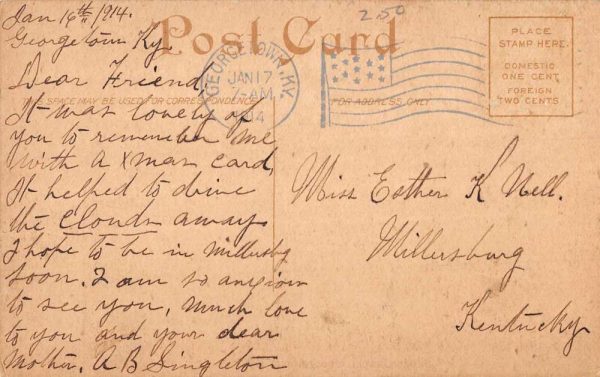 Jan 16th 1914.
Georgetown Ky.
250
Post Card
PLACE
STAMP HERE.
DOMESTIC
ONE CENT
FOREIGN
TWO CENTS
GEORGETOWN, KY.
JAN 17
7-AM
1914
SPACE MAY BE USED FOR CORRESPONDENCE
FOR ADDRESS ONLY
Dear Friend
It was lovely of
you to remember me
with a Xmas card,
It helped to drive
the clouds away
I hope to be in Millersbg
soon. I am so anxious
to see you, much love
to you and your dear
Mother. A B Singleton
Miss Esther K Nell.
Millersburg
Kentucky